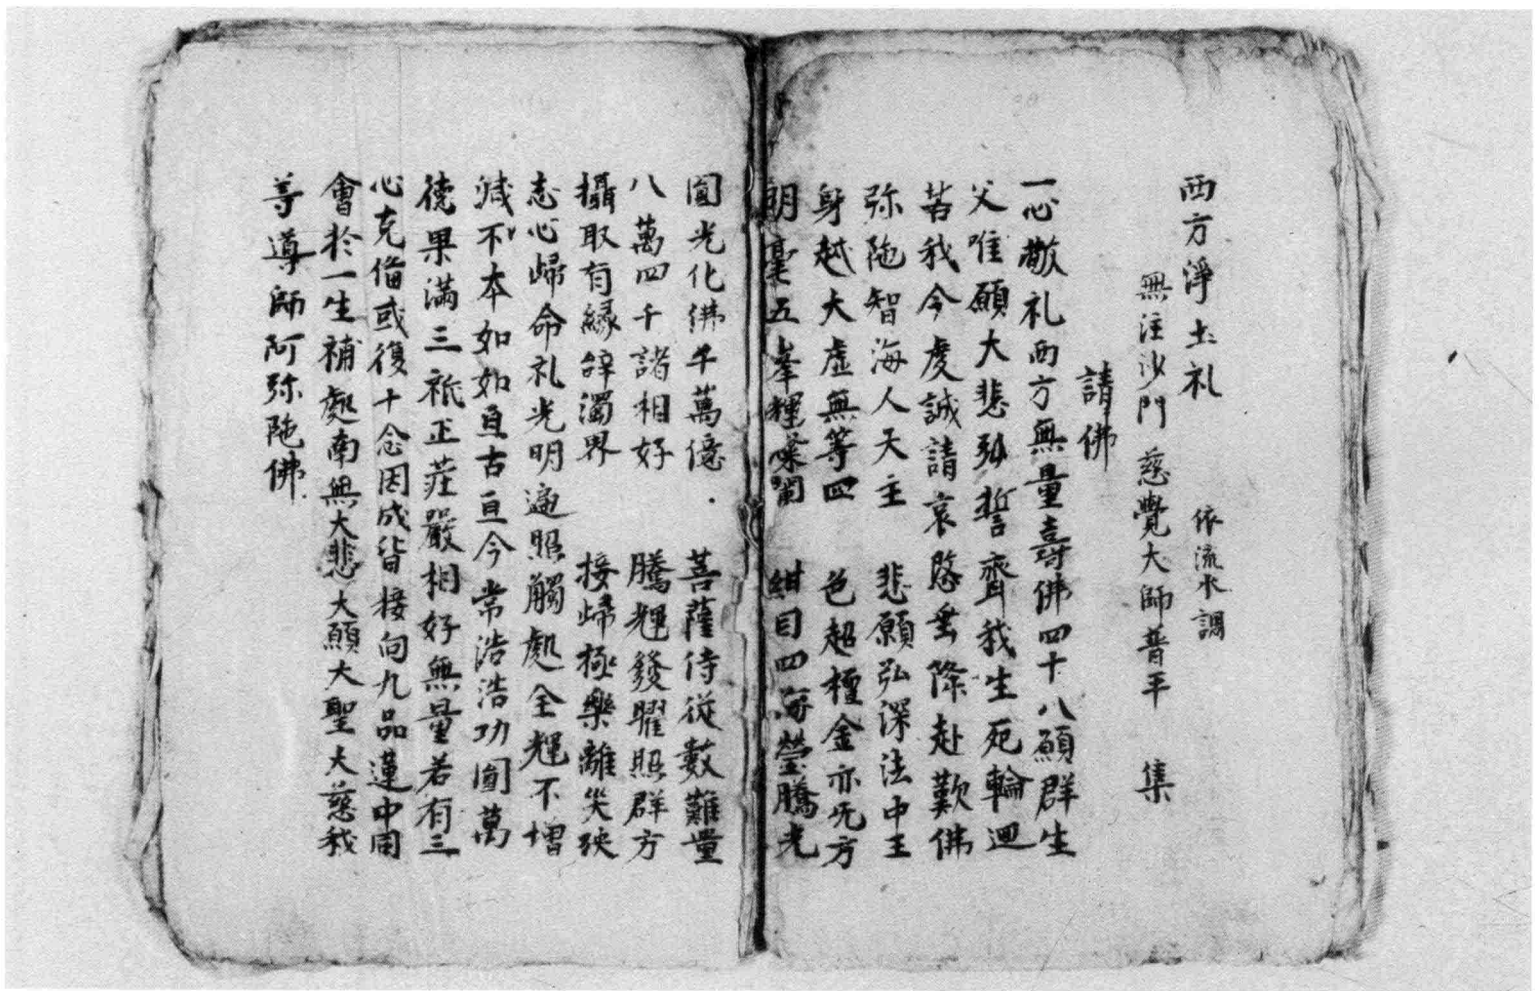 西方淨土礼　依流水調
無注沙門　慈覺大師普平　集
請佛
一心敬礼西方無量壽佛四十八願群生
父唯願大悲弘誓齊我生死輪迴
苦我今虔誠請哀愍垂降赴歎佛
弥陁智海人天主　悲願弘深法中王
身越大虛無等四　色超檀金亦无方
朗毫五峯輝閣　紺目四海瑩騰光
圎光化佛千萬億　菩薩侍從數難量
八萬四千諸相好　騰輝發曜照群方
攝取有緣辞濁界　接歸極樂離災殃
志心歸命礼光明遍照觸處全輝不增
減不本如如亘古亘今常浩浩功圎萬
德果滿三祇正莊嚴相好無量若有三
心克俻或復十念因成皆接向九品蓮中同
會於一生補處南無大悲大願大聖大慈我
等導師阿弥陁佛